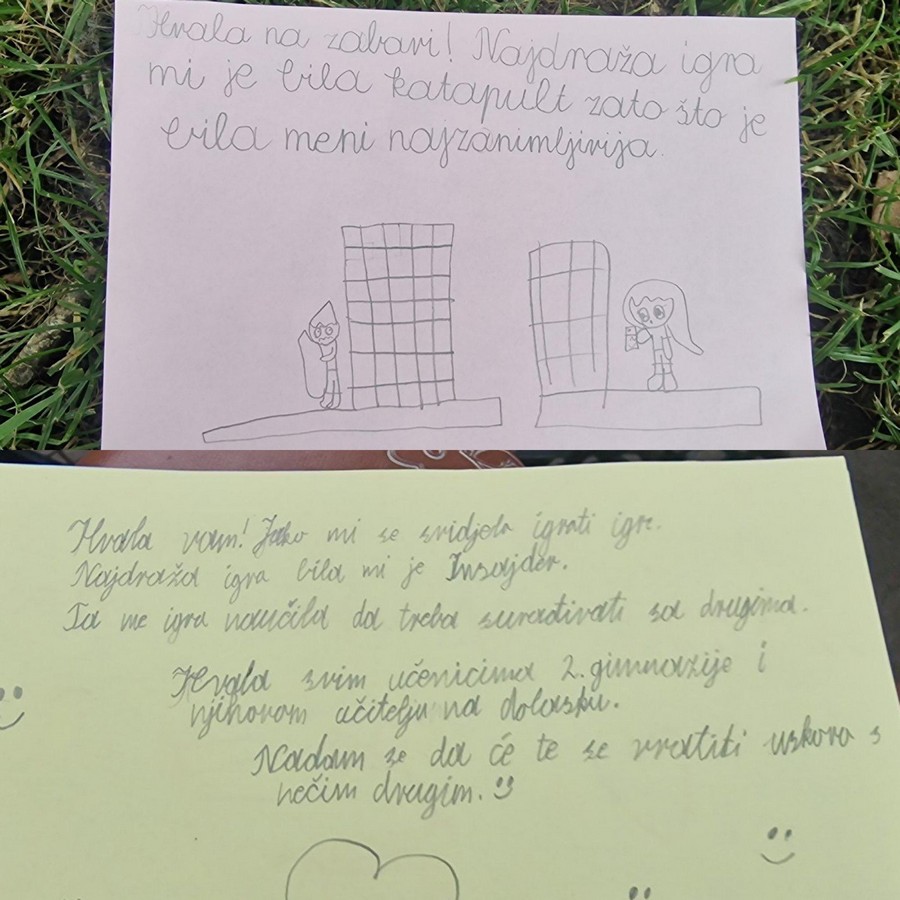 Hvala na zabavi! Najdraža igra
mi je bila katapult zato što je
bila meni najzanimljivija.
Hvala vam! Jako mi se svidjela igrati igre.
Najdraža igra bila mi je Insajder.
Ta me igra naučila da treba surađivati sa drugima.
Hvala svim učenicima 2. gimnazije i
njihovom učitelju na dolasku.
Nadam se da će te se vratiti uskoro s
nečim drugim.